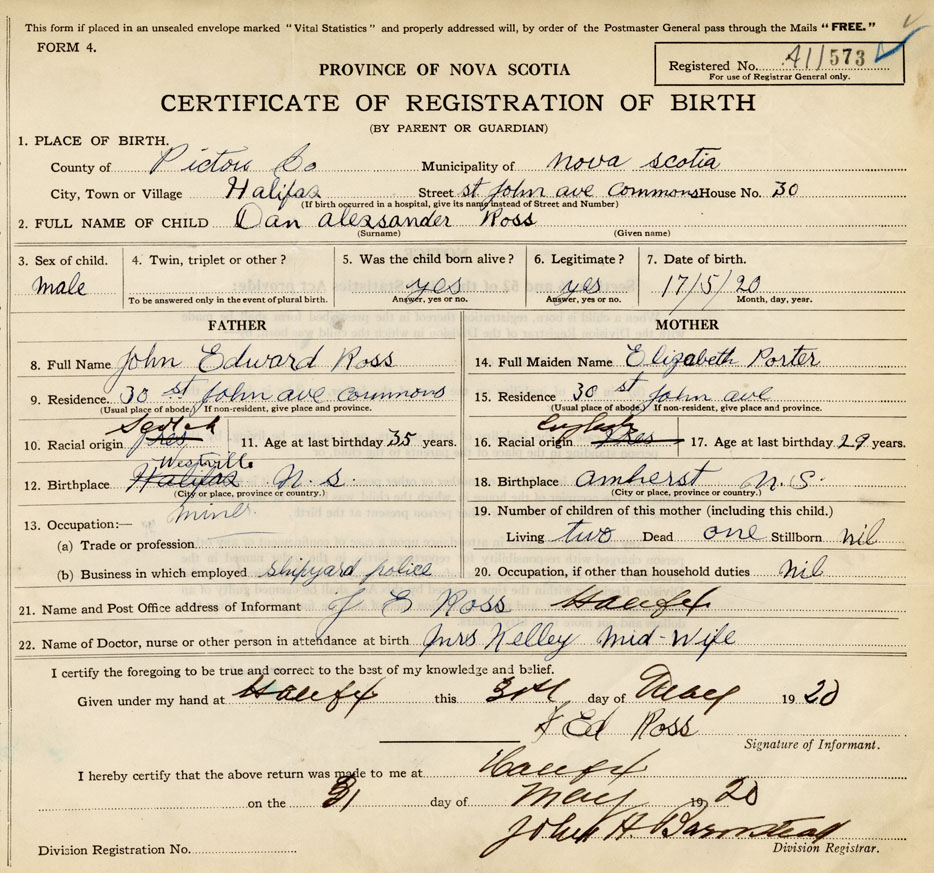 This form if placed in an unsealed envelope marked "Vital Statistics" and properly addressed will, by order of the Postmaster General pass through the Mails "FREE."
FORM 4.
Registered No. 573
For use of Registrar General only.
PROVINCE OF NOVA SCOTIA
CERTIFICATE OF REGISTRATION OF BIRTH
(BY PARENT OR GUARDIAN)
1. PLACE OF BIRTH.
County of Pictou Co Municipality of nova scotia
City, Town or Village Halifax Street st John ave commons House No. 30
(If birth occurred in a hospital, give its name instead of Street and Number)
2. FULL NAME OF CHILD Dan alexsander Ross
(Surname) (Given name)
3. Sex of child. 4. Twin, triplet or other ? 5. Was the child born alive ? 6. Legitimate ? 7. Date of birth.
male yes yes 17/5/20
To be answered only in the event of plural birth. Answer, yes or no. Answer, yes or no. Month, day, year.
FATHER MOTHER
8. Full Name John Edward Ross 14. Full Maiden Name Elizabeth Porter
9. Residence. 30 st John ave commons 15. Residence 30 st John ave
(Usual place of abode.) If non-resident, give place and province. (Usual place of abode.) If non-resident, give place and province.
10. Racial origin Scotch yes 11. Age at last birthday 35 years. 16. Racial origin English yes 17. Age at last birthday 29 years.
Westville
12. Birthplace Halifax N.S. 18. Birthplace amherst N.S.
(City or place, province or country.) (City or place, province or country.)
13. Occupation:— miner 19. Number of children of this mother (including this child.)
(a) Trade or profession Living two Dead one Stillborn nil
(b) Business in which employed shipyard police 20. Occupation, if other than household duties nil
21. Name and Post Office address of Informant J E Ross Halifax
22. Name of Doctor, nurse or other person in attendance at birth Mrs Kelley Mid-Wife
I certify the foregoing to be true and correct to the best of my knowledge and belief.
Given under my hand at Halifax this 30th day of May 1920
Ed Ross
Signature of Informant.
I hereby certify that the above return was made to me at Halifax
on the 31 day of May 1920
John H. Barnstead
Division Registration No. Division Registrar.